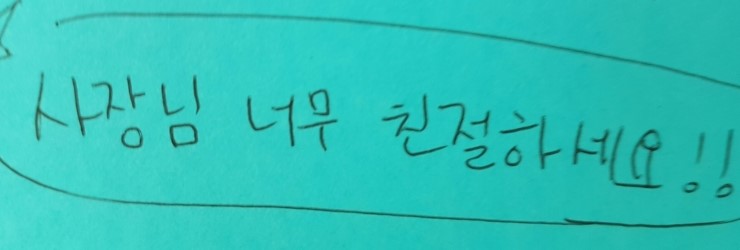 사장님 너무 친절하세요!!